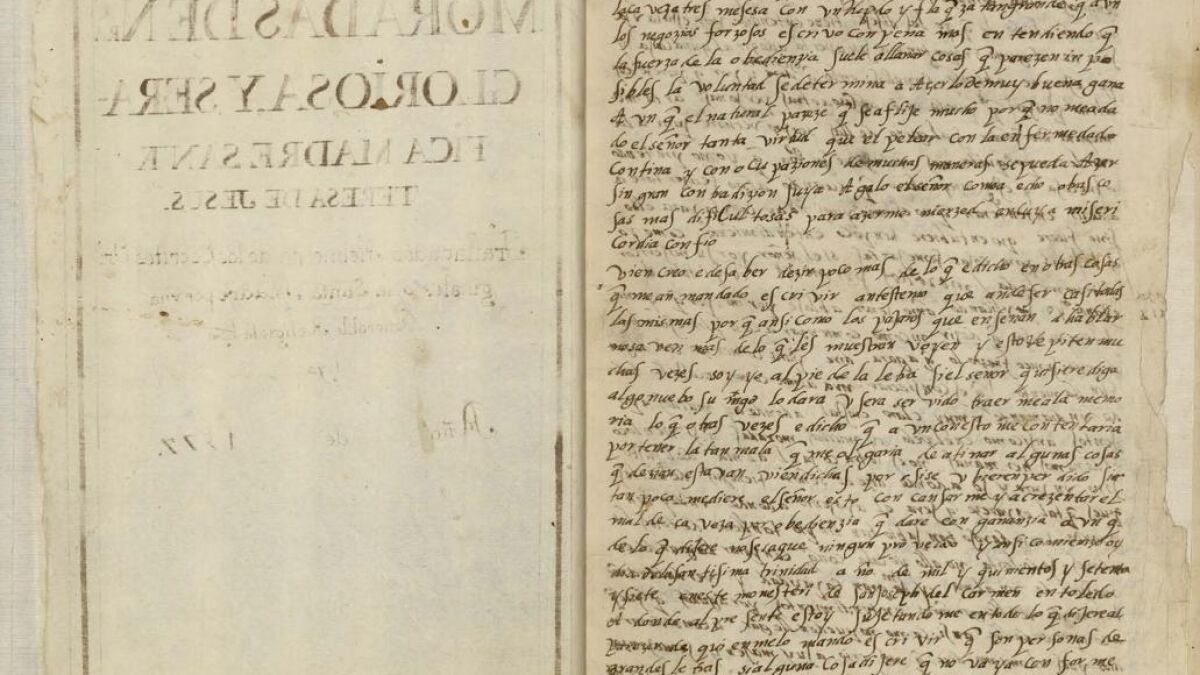 MORADAS DE N
GLORIOSA, Y SERA-
FICA MADRE SANTA
TERESA DE JESUS.
de los
Santa Madre por una
Venerable Religiosa
Año de 1577.
caveza tres meses a con un y flaq̃za tan grande q̃ a un
los negozios forzosos escrivo con pena mas entendiendo q̃
la fuerza de la obedienzia suele allanar cosas q̃ parezen inpo
sibles la voluntad se determina a azerlo de muy buena gana
a vn q̃ el natural pareze q̃ se aflije mucho por q̃ no me a da
do el señor tanta virtud que el pelear con la enfermedad
contina y con ocupaziones de muchas maneras se pueda azer
sin gran contradizion suya agalo el señor como a echo otras co
sas mas dificultosas para azerme merzed en cuya miseri
cordia confio
vien creo e de saber dezir poco mas de lo q̃ e dicho en otras cosas
q̃ me an mandado escrivir antes temo que an de ser casi todas
las mismas por q̃ ansi como los pajaros que enseñan a hablar
no saven mas de lo q̃ les muestran v oyen y esto repiten mu
chas vezes soy yo al pie de la letra si el señor quisiere diga
algo nuebo su mag̃ lo dara v sera servido traerme a la memo
ria lo q̃ otras vezes e dicho q̃ a vn con esto me contentaria
por tener la tan mala q̃ me olgaria de atinar algunas cosas
q̃ dezian estavan vien dichas por si se vbieren perdido si
tan poco me diere el señor esto con cansarme y acrezentar el
mal de caveza por obedienzia q̃ dare con gananzia a vn q̃
de lo q̃ dijere no se saque ningun provecho y ansi comienzo oy
dia de la santisima trinidad año de mil y quinientos y setenta
y siete en este monesterio de san Joseph del carmen en toledo
a donde al presente estoy sujetandome en todo lo q̃ dijere al
parezer de quien me lo manda escrivir q̃ son personas de
grandes letras si alguna cosa dijere q̃ no vaya conforme